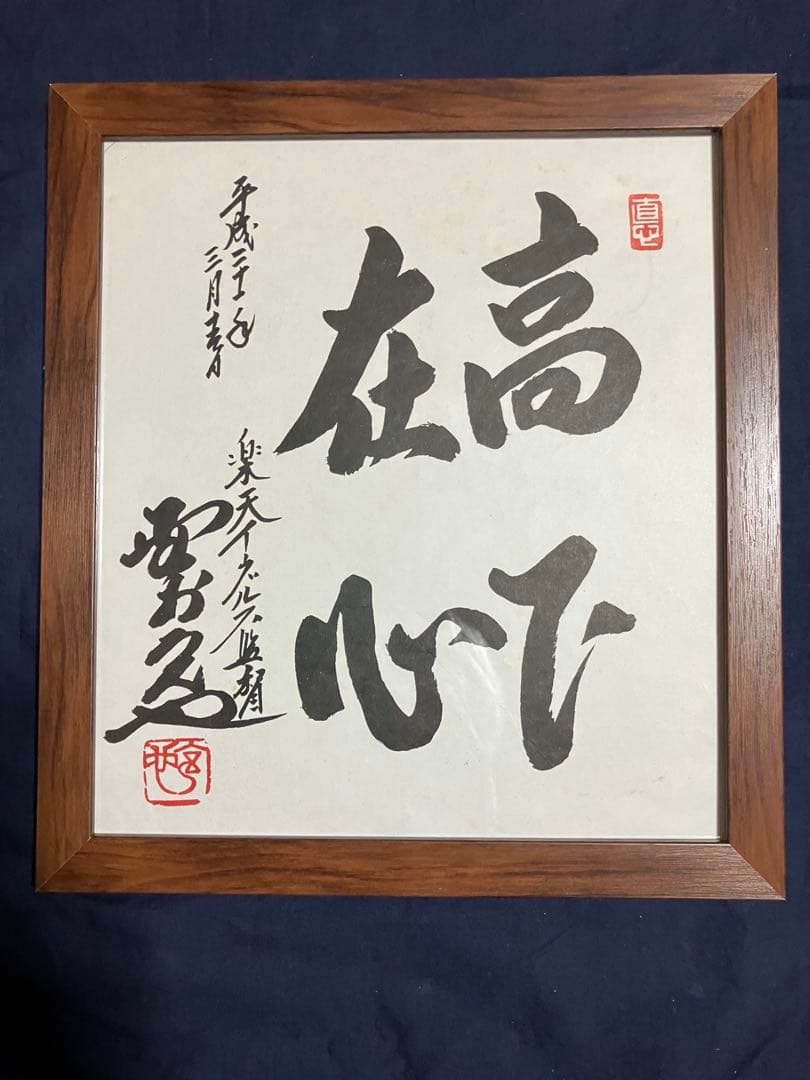 高下
在心
平成二十一年
三月吉日
楽天イーグルス監督
野村克也